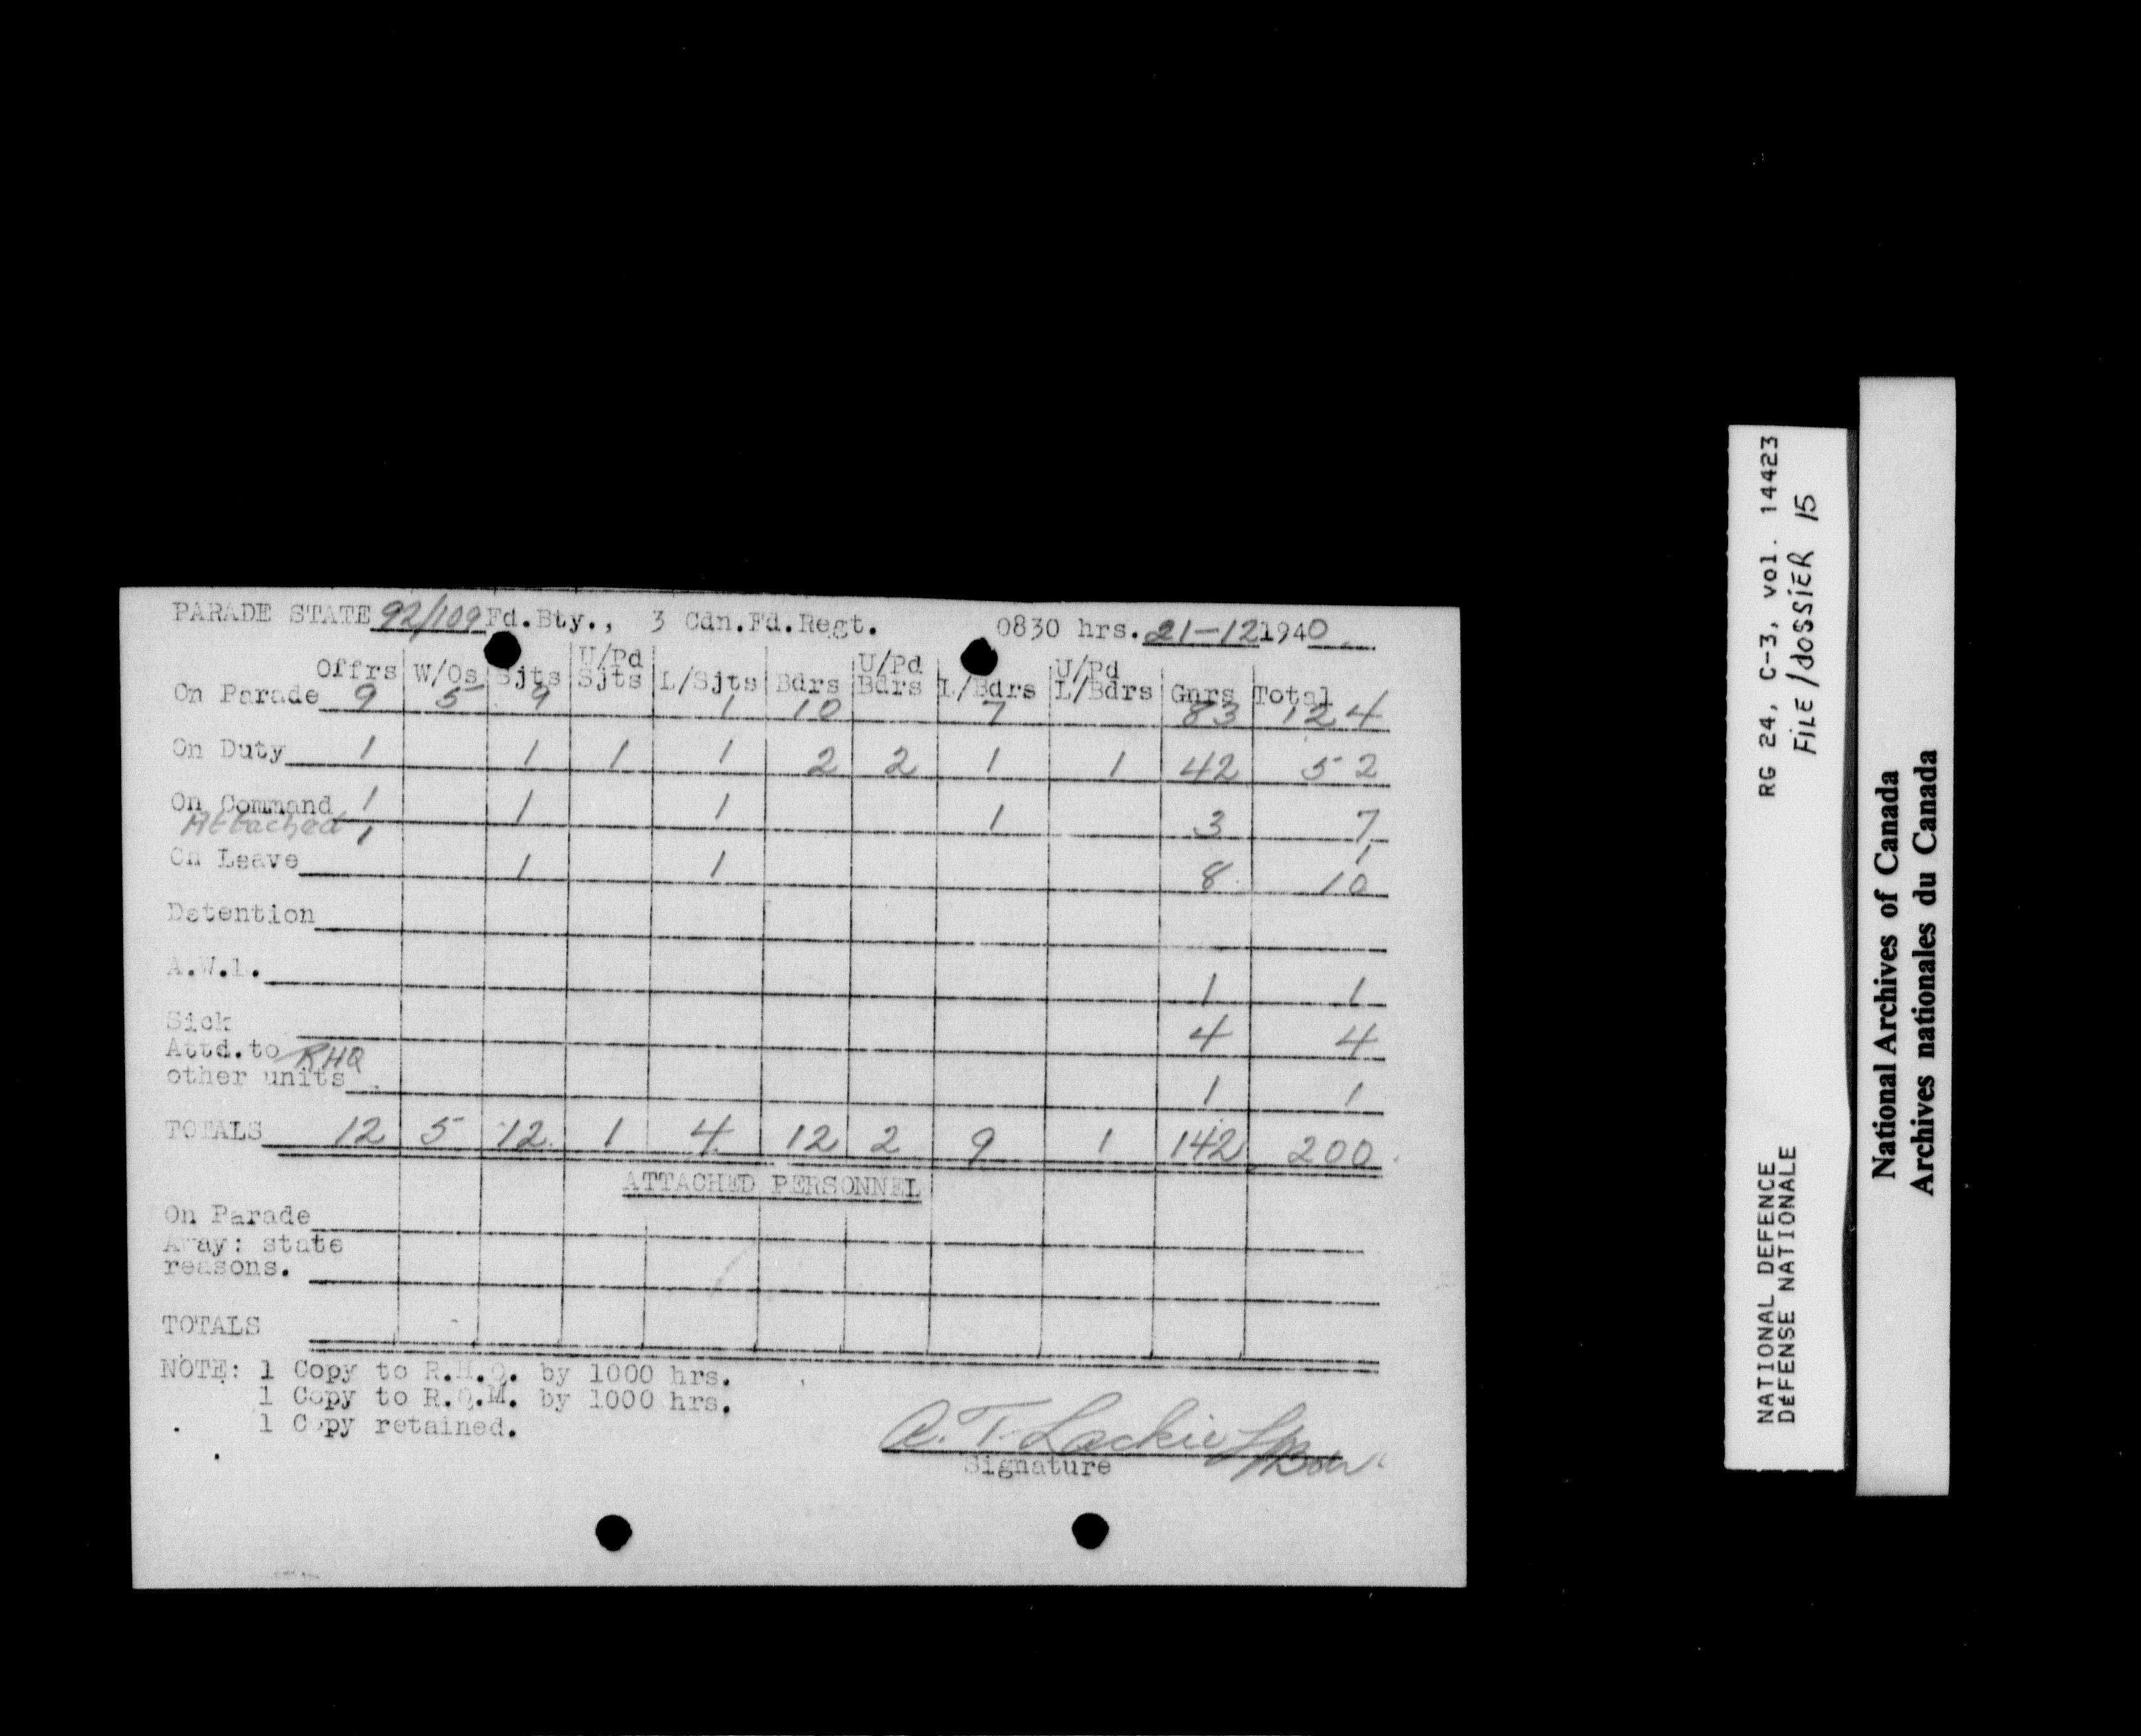 PARADE STATE 92/109 Fd.Bty., 3 Cdn.Fd.Regt. 0830 hrs. 21-12 1940
Offrs W/Os Sjts U/Pd Sjts L/Sjts Bdrs U/Pd Bdrs L/Bdrs U/Pd L/Bdrs Gnrs Total
On Parade 9 5 9 1 10 7 83 124
On Duty 1 1 1 1 2 2 1 1 42 52
On Command 1 1 1 1 3 7
Attached 1 1
On Leave 1 1 8 10
Detention
A.W.l. 1 1
Sick 4 4
Attd.to RHQ
other units 1 1
TOTALS 12 5 12 1 4 12 2 9 1 142 200
ATTACHED PERSONNEL
On Parade
Away: state
reasons.
TOTALS
NOTE: 1 Copy to R.H.Q. by 1000 hrs.
1 Copy to R.Q.M. by 1000 hrs.
1 Copy retained.
A. T. Lackie L/Bdr.
Signature
RG 24, C-3, vol. 14423
FILE/dossier 15
NATIONAL DEFENCE
DéFENSE NATIONALE
National Archives of Canada
Archives nationales du Canada